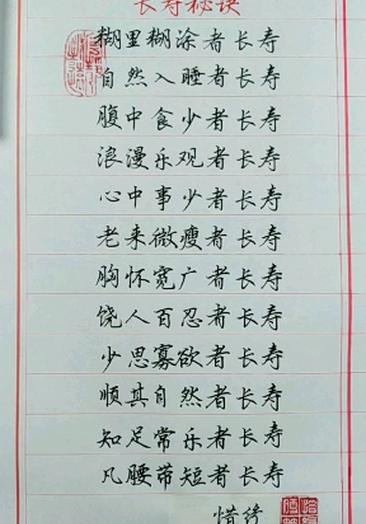 长寿秘诀
糊里糊涂者长寿
自然入睡者长寿
腹中食少者长寿
浪漫乐观者长寿
心中事少者长寿
老来微瘦者长寿
胸怀宽广者长寿
饶人百忍者长寿
少思寡欲者长寿
顺其自然者长寿
知足常乐者长寿
凡腰带短者长寿
惜缘